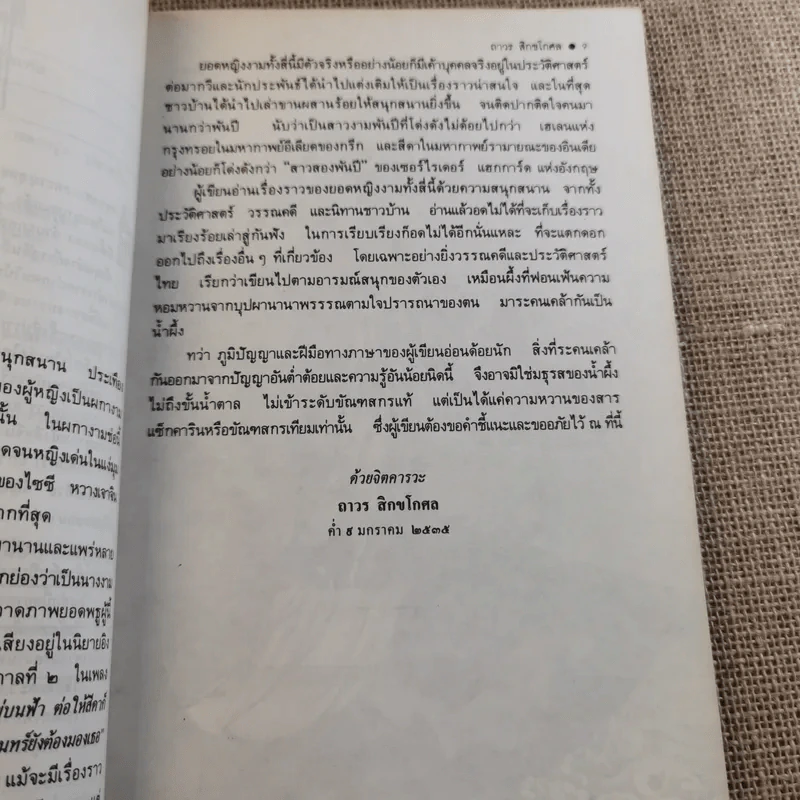 นุกสนาน ประเทือง
ของผู้หญิงเป็นผกางาม
นั้น ในผกางามช่อนี้
ดจนหญิงเด่นในแง่มุม
ของไซซี หวางเจาจิน
ากที่สุด
านานและแพร่หลาย
กย่องว่าเป็นนางงาม
วาดภาพยอดพธูผู้นี้
เสียงอยู่ในนิยายอิง
กาลที่ ๒ ในเพลง
บนฟ้า ต่อให้สีดาก็
นทร์ยังต้องมองเธอ"
แม้จะมีเรื่องราว
ถาวร สิกขโกศล ● ๗
ยอดหญิงงามทั้งสี่นี้มีตัวจริงหรืออย่างน้อยก็มีเค้าบุคคลจริงอยู่ในประวัติศาสตร์
ต่อมากวีและนักประพันธ์ได้นำไปแต่งเติมให้เป็นเรื่องราวน่าสนใจ และในที่สุด
ชาวบ้านได้นำไปเล่าขานผสานร้อยให้สนุกสนานยิ่งขึ้น จนติดปากติดใจคนมา
นานกว่าพันปี นับว่าเป็นสาวงามพันปีที่โด่งดังไม่ด้อยไปกว่า เฮเลนแห่ง
กรุงทรอยในมหากาพย์อีเลียดของกรีก และสีดาในมหากาพย์รามายณะของอินเดีย
อย่างน้อยก็โด่งดังกว่า "สาวสองพันปี" ของเซอร์ไรเดอร์ แฮกการ์ด แห่งอังกฤษ
ผู้เขียนอ่านเรื่องราวของยอดหญิงงามทั้งสี่นี้ด้วยความสนุกสนาน จากทั้ง
ประวัติศาสตร์ วรรณคดี และนิทานชาวบ้าน อ่านแล้วอดไม่ได้ที่จะเก็บเรื่องราว
มาเรียงร้อยเล่าสู่กันฟัง ในการเรียบเรียงก็อดไม่ได้อีกนั่นแหละ ที่จะแตกดอก
ออกไปถึงเรื่องอื่น ๆ ที่เกี่ยวข้อง โดยเฉพาะอย่างยิ่งวรรณคดีและประวัติศาสตร์
ไทย เรียกว่าเขียนไปตามอารมณ์สนุกของตัวเอง เหมือนผึ้งที่ฟอนเฟ้นความ
หอมหวานจากบุปผานานาพรรรณตามใจปรารถนาของตน มาระคนเคล้ากันเป็น
น้ำผึ้ง
ทว่า ภูมิปัญญาและฝีมือทางภาษาของผู้เขียนอ่อนด้อยนัก สิ่งที่ระคนเคล้า
กันออกมาจากปัญญาอันต่ำต้อยและความรู้อันน้อยนิดนี้ จึงอาจมิใช่มธุรสของน้ำผึ้ง
ไม่ถึงขั้นน้ำตาล ไม่เข้าระดับขัณฑสกรแท้ แต่เป็นได้แค่ความหวานของสาร
แซ็กคารินหรือขัณฑสกรเทียมเท่านั้น ซึ่งผู้เขียนต้องขอคำชี้แนะและขออภัยไว้ ณ ที่นี้
ด้วยจิตคารวะ
ถาวร สิกขโกศล
ค่ำ ๙ มกราคม ๒๕๓๕